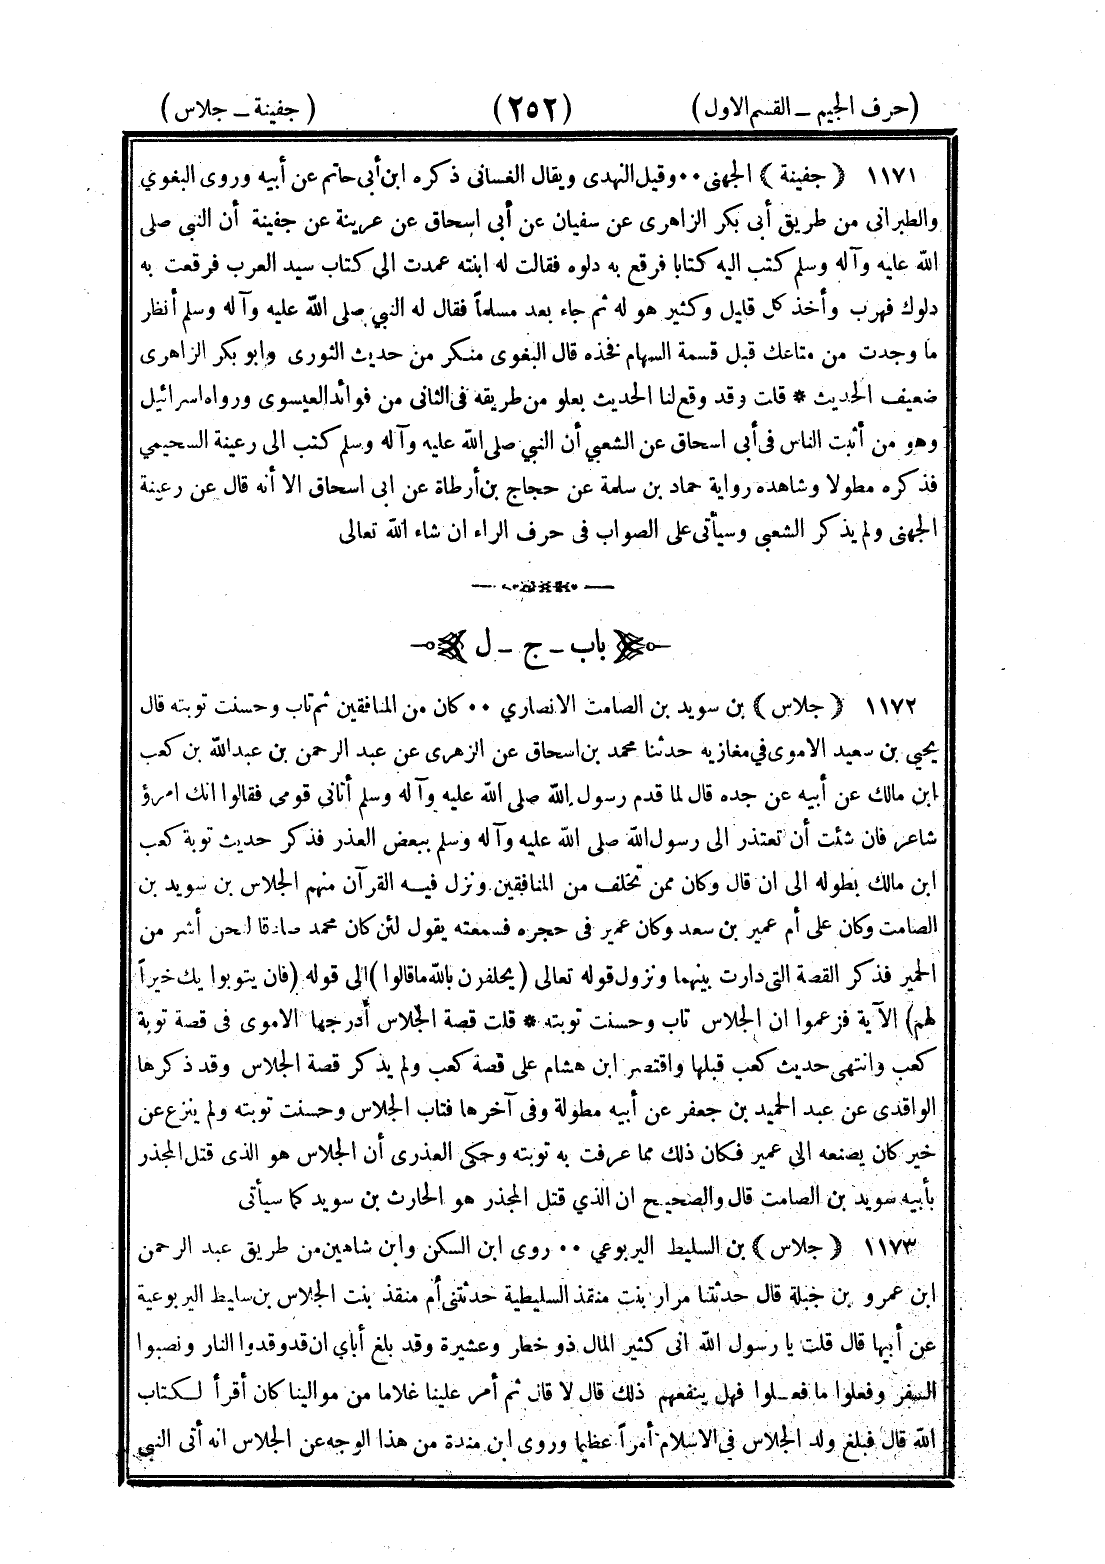 (حرف الجيم ــ القسم الاول) (٢٥٢) (جفينة ــ جلاس)
١١٧١ ﴿ جفينة ﴾ الجهنى ٠٠ وقيل النهدى ويقال الغسانى ذكره ابن أبى حاتم عن أبيه وروى البغوي
والطبرانى من طريق أبى بكر الزاهرى عن سفيان عن أبى اسحاق عن عرينة عن جفينة أن النبي صلى
الله عليه وآله وسلم كتب اليه كتابا فرقع به دلوه فقالت له ابنته عمدت الي كتاب سيد العرب فرقعت به
دلوك فهرب وأخذ كل قليل وكثير هو له ثم جاء بعد مسلماً فقال له النبي صلى الله عليه وآله وسلم أنظر
ما وجدت من متاعك قبل قسمة السهام فخذه قال البغوى منكر من حديث الثورى وابو بكر الزاهرى
ضعيف الحديث * قلت وقد وقع لنا الحديث بعلو من طريقه فى الثانى من فوائد العيسوى ورواه اسرائيل
وهو من أثبت الناس فى أبى اسحاق عن الشعبي أن النبي صلى الله عليه وآله وسلم كتب الى رعينة السحيمي
فذكره مطولا وشاهده رواية حماد بن سلمة عن حجاج بن أرطاة عن ابى اسحاق الا أنه قال عن رعينة
الجهنى ولم يذكر الشعبي وسيأتى على الصواب فى حرف الراء ان شاء الله تعالى
باب ــ ج ــ ل
١١٧٢ ﴿ جلاس ﴾ بن سويد بن الصامت الانصاري ٠٠ كان من المنافقين ثم تاب وحسنت توبته قال
يحيى بن سعيد الاموى في مغازيه حدثنا محمد بن اسحاق عن الزهرى عن عبد الرحمن بن عبد الله بن كعب
ابن مالك عن أبيه عن جده قال لما قدم رسول الله صلى الله عليه وآله وسلم أتاني قومى فقالوا انك امرؤ
شاعر فان شئت أن تعتذر الى رسول الله صلى الله عليه وآله وسلم ببعض العذر فذكر حديث توبة كعب
ابن مالك بطوله الى ان قال وكان ممن تخلف من المنافقين ونزل فيه القرآن منهم الجلاس بن سويد بن
الصامت وكان على أم عمير بن سعد وكان عمير فى حجره فسمعته يقول لئن كان محمد صادقا لنحن أشر من
الحمير فذكر القصة التى دارت بينهما ونزول قوله تعالى (يحلفون بالله ماقالوا) الى قوله (فان يتوبوا يك خيراً
لهم) الآية فزعموا ان الجلاس تاب وحسنت توبته * قلت قصة الجلاس أدرجها الاموى فى قصة توبة
كعب وانتهى حديث كعب قبلها واقتصر ابن هشام على قصة كعب ولم يذكر قصة الجلاس وقد ذكرها
الواقدى عن عبد الحميد بن جعفر عن أبيه مطولة وفى آخرها فتاب الجلاس وحسنت توبته ولم ينزع عن
خير كان يصنعه الي عمير فكان ذلك مما عرفت به توبته وحكى العذرى أن الجلاس هو الذى قتل المجذر
بأبيه سويد بن الصامت قال والصحيح ان الذي قتل المجذر هو الحارث بن سويد كما سيأتى
١١٧٣ ﴿ جلاس ﴾ بن السليط اليربوعي ٠٠ روى ابن السكن وابن شاهين من طريق عبد الرحمن
ابن عمرو بن جبلة قال حدثتنا مرار بنت منقذ السليطية حدثتنى أم منقذ بنت الجلاس بن سليط اليربوعية
عن أبيها قال قلت يا رسول الله انى كثير المال ذو خطر وعشيرة وقد بلغ أباي ان قد وقدوا النار ونصبوا
السفر وفعلوا ما فعلوا فهل ينفعهم ذلك قال لا قال ثم أمر علينا غلاما من موالينا كان أقرأ لكتاب
الله قال فبلغ ولد الجلاس في الاسلام أمراً عظيما وروى ابن مندة من هذا الوجه عن الجلاس انه أتى النبي